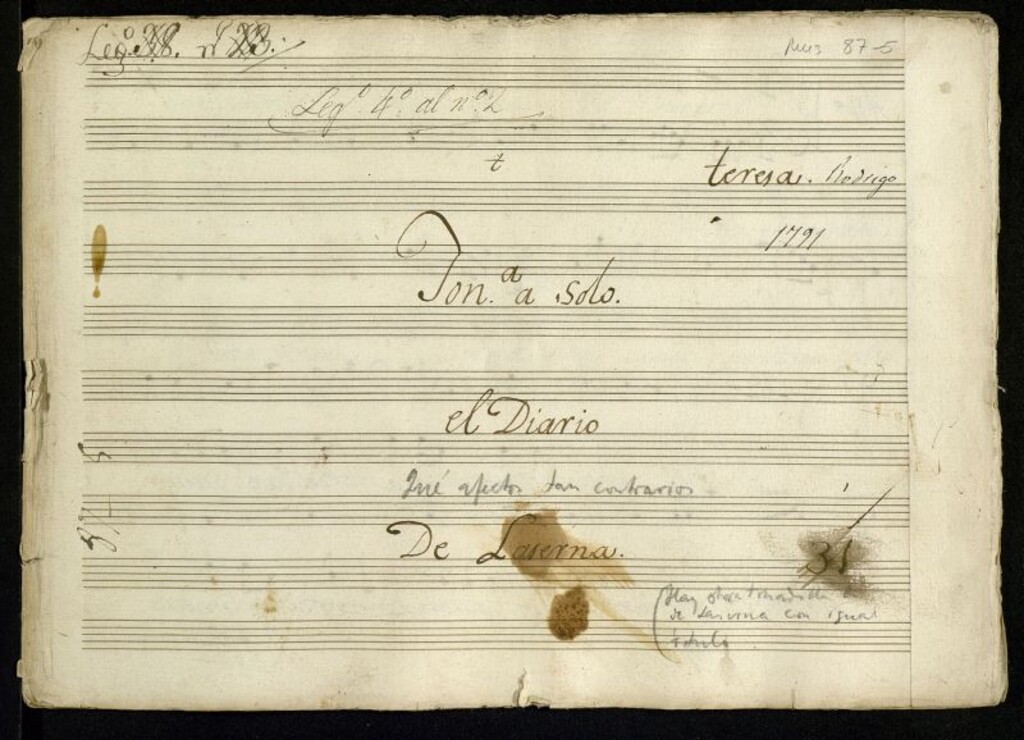 Leg.º nº
Mus 87-5
Legº 4º al nº 2
t
teresa. Rodrigo
1791
Ton.ª a solo.
el Diario
Qué afectos tan contrarios
De Laserna.
31
(Hay otra tonadilla
de Laserna con igual
título